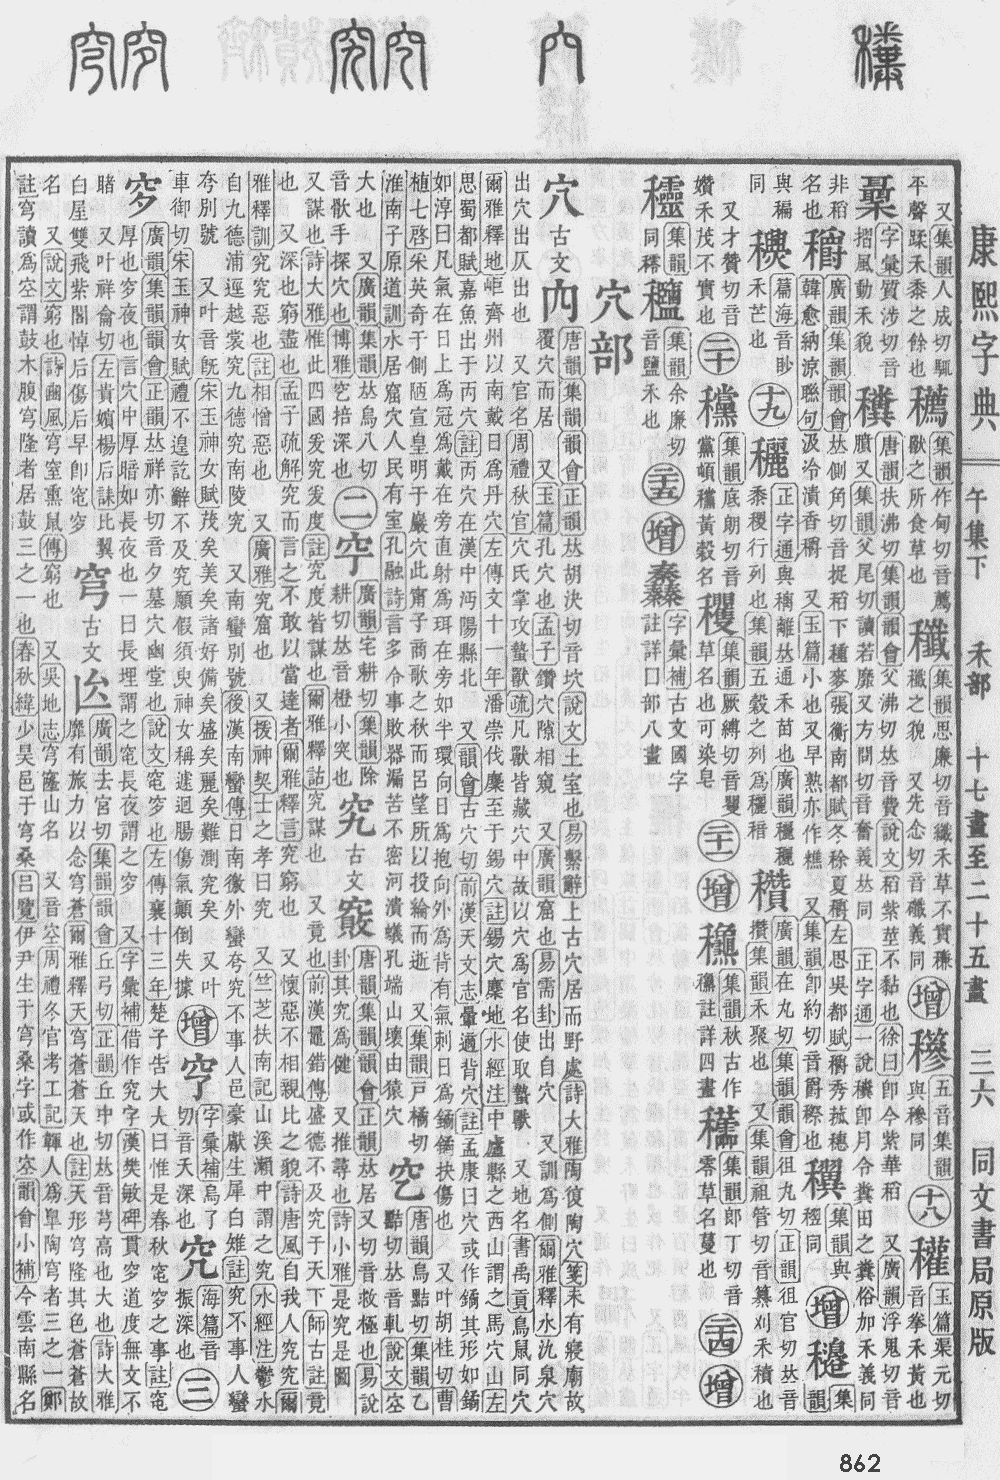 康熙字典 午集下 禾部 十七畫至二十五畫 三六 同文書局原版
又集韻人成切𩥉平聲蹂禾黍之餘也 集韻作甸切音薦獸之所食草也 集韻思廉切音纖禾草不實 穖之貌 又先念切音磩義同 增 穇 五音集韻與穇同 十八 權 玉篇渠元切音拳禾黃也
字彙質涉切音摺風動禾貌 穬 唐韻扶沸切集韻韻會父沸切𠀤音費說文稻紫莖不黏也 徐曰卽今紫華稻 又廣韻浮鬼切音
非稻名也 穛 廣韻集韻韻會𠀤側角切音捉稻下種麥 張衡南都賦冬稌夏穱 左思吳都賦穱秀菰穗
與稨同 穓 篇海音眇禾芒也 十九 穲 正字通與穲離𠀤通禾苗也 廣韻穲穲黍稷行列也 集韻五穀之列爲穲 穳 廣韻在丸切集韻韻會徂丸切正韻徂官切𠀤音攢 集韻禾聚也 又集韻祖管切音纂刈禾積也
又才贊切音㜺禾茂不實也 二十 䆃 集韻底朗切音黨 穬 集韻厥縛切音矍草名也可染皂 二十一 增 龝 集韻秋古作龝註詳四畫 集韻郎丁切音零草名蔓也 二十四 增
集韻同穤 集韻余廉切音鹽禾也 二十五 增 字彙補古文國字註詳囗部八畫
穴部
穴 古文 內 唐韻集韻韻會正韻𠀤胡決切音坎 說文土室也 易繫辭上古穴居而野處 詩大雅陶復陶穴 箋未有寢廟故覆穴而居 又玉篇孔穴也 孟子鑽穴隙相窺 又廣韻窟也 易需卦出自穴 又訓爲側 爾雅釋水氿泉穴
出穴出仄出也 又官名 周禮秋官穴氏掌攻蟄獸 疏凡獸皆藏穴中故以穴爲官名使取蟄獸 又地名 書禹貢鳥鼠同穴
爾雅釋地岠齊州以南戴日爲丹穴 左傳文十一年潘崇伐麇至于錫穴 註錫穴麇地 水經注中廬縣之西山謂之馬穴山 左
思蜀都賦嘉魚出于丙穴 註丙穴在漢中沔陽縣北 又韻會古穴切 前漢天文志暈適背穴 註孟康曰穴或作鐍其形如鐍
如淳曰凡氣在日上爲冠爲戴在旁直射爲珥在旁如半環向日爲抱向外爲背有氣刺日爲鐍鐍抉傷也 又叶胡桂切 曹
植七啓采英奇于側陋宣皇明于巖穴此甯子商歌之秋而呂望所以投綸而逝 又集韻戸橘切 乞 唐韻烏黠切集韻乙
淮南子原道訓水居窟穴人民有室 孔融詩言多令事敗器漏苦不密河潰蟻孔端山壞由猿穴 黠切𠀤音軋 說文空
大也 又廣韻集韻𠀤烏八切音歇手探穴也 博雅穵掊深也 二 穵 廣韻宅耕切集韻除耕切𠀤音橙小突也 究 古文 㝌 唐韻集韻韻會正韻𠀤居又切音救極也 易說卦其究爲健 又推尋也 詩小雅是究是圖
又謀也 詩大雅惟此四國爰究爰度 註究度皆謀也 爾雅釋詁究謀也 又竟也 前漢鼂錯傳盛德不及究于天下 師古註竟
也 又深也窮盡也 孟子疏解究而言之不敢以當達者 爾雅釋言究窮也 又懷惡不相親比之貌 詩唐風自我人究究 爾
雅釋訓究究惡也 註相憎惡也 又廣雅究窟也 又援神契士之孝曰究 又竺芝扶南記山溪瀨中謂之究 水經注鬱水
自九德浦逕越裳究九德究南陵究 又南蠻別號 後漢南蠻傳日南徼外蠻夸究不事人邑豪獻生犀白雉 註究不事人蠻
夸別號 又叶音旣 宋玉神女賦茂矣美矣諸好備矣盛矣麗矣難測究矣 又叶 增 穵 字彙補烏了切音夭深也 究 海篇音振深也 三
車御切 宋玉神女賦禮不遑訖辭不及究願假須臾神女稱遽迴腸傷氣顚倒失據
穸 廣韻集韻韻會正韻𠀤祥亦切音夕墓穴幽堂也 說文窀穸也 左傳襄十三年楚子吿大夫曰惟是春秋窀穸之事 註窀
厚也穸夜也言穴中厚暗如長夜也 一曰長埋謂之窀長夜謂之穸 又字彙補借作究字 漢樊敏碑貫穸道度無文不
睹 又叶祥侖切 左貴嬪楊后誄比翼白屋雙飛紫閣悼后傷后早卽窀穸 穹 古文 廣韻去宮切集韻韻會丘弓切正韻丘中切𠀤音芎高也大也 詩大雅靡有旅力以念穹蒼 爾雅釋天穹蒼蒼天也 註天形穹隆其色蒼蒼故
名 又說文窮也 詩豳風穹室熏鼠 傳窮也 又吳地志穹窿山名 又音空 周禮冬官考工記韗人爲臯陶穹者三之一 鄭
註穹讀爲空謂鼓木腹穹隆者居鼓三之一也 春秋緯少昊邑于穹桑 呂覽伊尹生于穹桑字或作空 韻會小補今雲南縣名
862